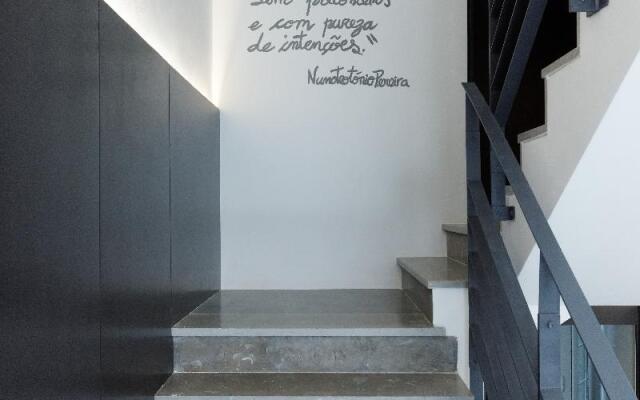 e com pureza
de intenções."
Nuno Teotónio Pereira